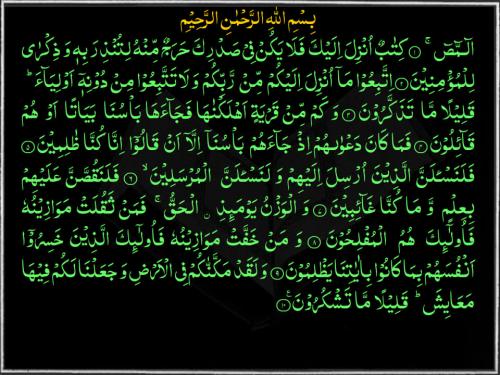 بِسْمِ اللهِ الرَّحْمٰنِ الرَّحِيْمِ
الٓمّٓصٓ ۚ ۝۱ كِتٰبٌ اُنْزِلَ اِلَيْكَ فَلَا يَكُنْ فِيْ صَدْرِكَ حَرَجٌ مِّنْهُ لِتُنْذِرَ بِهٖ وَ ذِكْرٰى
لِلْمُؤْمِنِيْنَ ۝۲ اِتَّبِعُوْا مَاۤ اُنْزِلَ اِلَيْكُمْ مِّنْ رَّبِّكُمْ وَ لَا تَتَّبِعُوْا مِنْ دُوْنِهٖۤ اَوْلِيَآءَ ؕ
قَلِيْلًا مَّا تَذَكَّرُوْنَ ۝۳ وَ كَمْ مِّنْ قَرْيَةٍ اَهْلَكْنٰهَا فَجَآءَهَا بَاْسُنَا بَيَاتًا اَوْ هُمْ
قَآئِلُوْنَ ۝۴ فَمَا كَانَ دَعْوٰىهُمْ اِذْ جَآءَهُمْ بَاْسُنَاۤ اِلَّاۤ اَنْ قَالُوْۤا اِنَّا كُنَّا ظٰلِمِيْنَ ۝۵
فَلَنَسْـَٔلَنَّ الَّذِيْنَ اُرْسِلَ اِلَيْهِمْ وَ لَنَسْـَٔلَنَّ الْمُرْسَلِيْنَ ۙ ۝۶ فَلَنَقُصَّنَّ عَلَيْهِمْ
بِعِلْمٍ وَّ مَا كُنَّا غَآئِبِيْنَ ۝۷ وَ الْوَزْنُ يَوْمَىِٕذِ ۟ الْحَقُّ ۚ فَمَنْ ثَقُلَتْ مَوَازِيْنُهٗ
فَاُولٰٓىِٕكَ هُمُ الْمُفْلِحُوْنَ ۝۸ وَ مَنْ خَفَّتْ مَوَازِيْنُهٗ فَاُولٰٓىِٕكَ الَّذِيْنَ خَسِرُوْۤا
اَنْفُسَهُمْ بِمَا كَانُوْا بِاٰيٰتِنَا يَظْلِمُوْنَ ۝۹ وَ لَقَدْ مَكَّنّٰكُمْ فِي الْاَرْضِ وَ جَعَلْنَا لَكُمْ فِيْهَا
مَعَايِشَ ؕ قَلِيْلًا مَّا تَشْكُرُوْنَ ۝۱۰